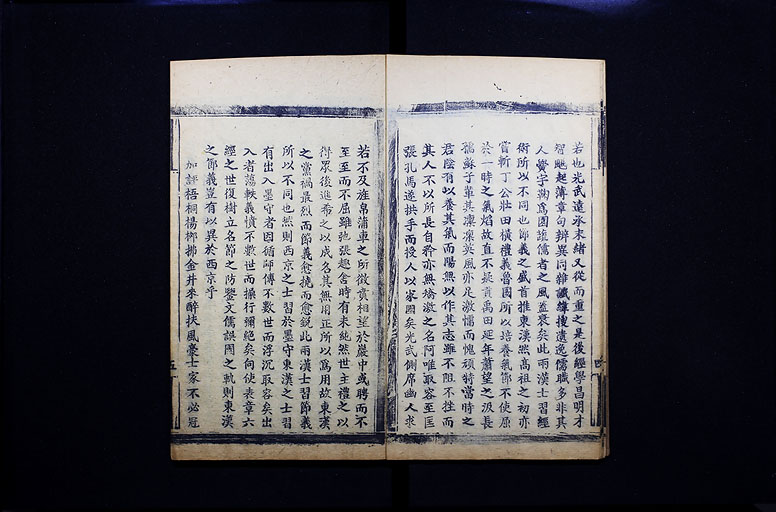 若也光武遠承末緒又從而重之是後經學昌明才
智颷起薄章句辨異同雜讖緯搜遺逸儒職多非其
人實字鞠爲園蔬儒者之風益衰矣此兩漢士習經
術所以不同也節義之盛首推東漢然高祖之初亦
嘗斬丁公壯田橫禮義魯固所以培養氣節不使屈
於一時之氣焰故直不疑貢禹田延年蕭望之汲長
孺蘇子輩其凜凜英風亦足激懦而愧頑特當時之
君陰有以養其氣而陽無以作其志雖不阻不挫而
其人不以所長自矜亦無矯激之名阿唯取容至匡
張孔馬遂拱手而授人以家國矣光武側席幽人求
若不及旌帛蒲車之所徵賁相望於巖中或聘而不
至至而不屈雖弛張趣舍時有未純然世主禮之以
得眾後進希之以成名其無用正所以爲用故東漢
之黨禍最烈而節義愈挽而愈銳此兩漢士習節義
所以不同也然則西京之士習於墨守東漢之士習
有出入墨守者因循師傅不數世而浮沉取容矣出
入者蕩軼義憤不數世而操行彌絕矣向使表章六
經之世復樹立名節之防鑒文儒誤國之軌則東漢
之節義豈有以異於西京乎
加評梧桐楊柳拂金井來醉扶風豪士家不必冠